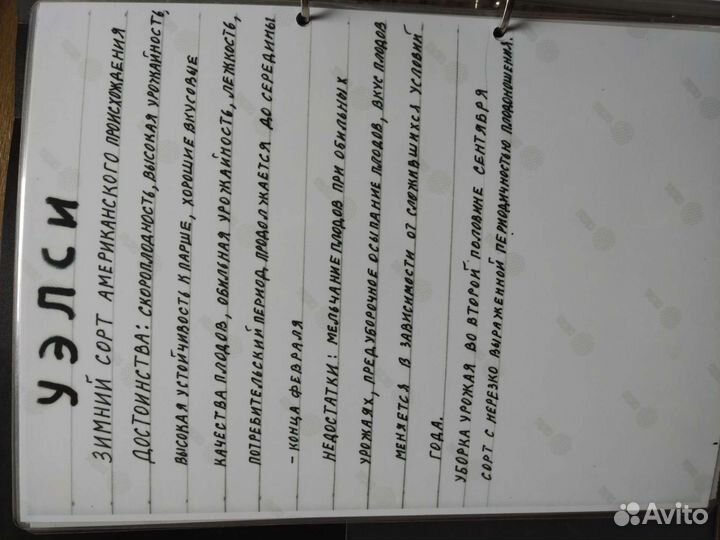 УЭЛСИ
ЗИМНИЙ СОРТ АМЕРИКАНСКОГО ПРОИСХОЖДЕНИЯ
ДОСТОИНСТВА: СКОРОПЛОДНОСТЬ, ВЫСОКАЯ УРОЖАЙНОСТЬ,
ВЫСОКАЯ УСТОЙЧИВОСТЬ К ПАРШЕ, ХОРОШИЕ ВКУСОВЫЕ
КАЧЕСТВА ПЛОДОВ, ОБИЛЬНАЯ УРОЖАЙНОСТЬ, ЛЕЖКОСТЬ,
ПОТРЕБИТЕЛЬСКИЙ ПЕРИОД ПРОДОЛЖАЕТСЯ ДО СЕРЕДИНЫ
- КОНЦА ФЕВРАЛЯ
НЕДОСТАТКИ: МЕЛЬЧАНИЕ ПЛОДОВ ПРИ ОБИЛЬНЫХ
УРОЖАЯХ, ПРЕДУБОРОЧНОЕ ОСЫПАНИЕ ПЛОДОВ, ВКУС ПЛОДОВ
МЕНЯЕТСЯ В ЗАВИСИМОСТИ ОТ СЛОЖИВШИХСЯ УСЛОВИЙ
ГОДА.
УБОРКА УРОЖАЯ ВО ВТОРОЙ ПОЛОВИНЕ СЕНТЯБРЯ
СОРТ С НЕРЕЗКО ВЫРАЖЕННОЙ ПЕРИОДИЧНОСТЬЮ ПЛОДОНОШЕНИЯ.
Avito